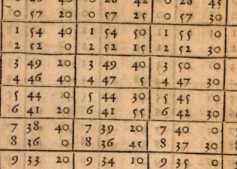 0 57 20 0 57 25 0 57 30
1 54 40 1 54 50 1 55 0
2 52 0 2 52 15 2 52 30
3 49 20 3 49 40 3 50 0
4 46 40 4 47 5 4 47 30
5 44 0 5 44 30 5 45 0
6 41 20 6 41 55 6 42 30
7 38 40 7 39 20 7 40 0
8 36 0 8 36 45 8 37 30
9 33 20 9 34 10 9 35 0